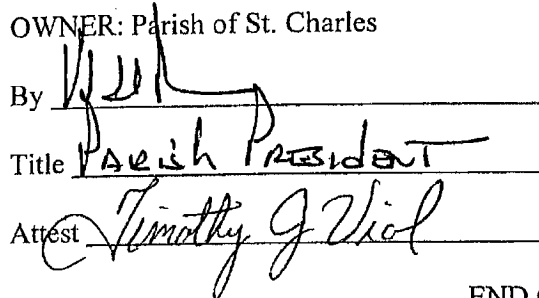 OWNER: Parish of St. Charles
By
Title PARISH PRESIDENT
Attest Timothy J Vial
END